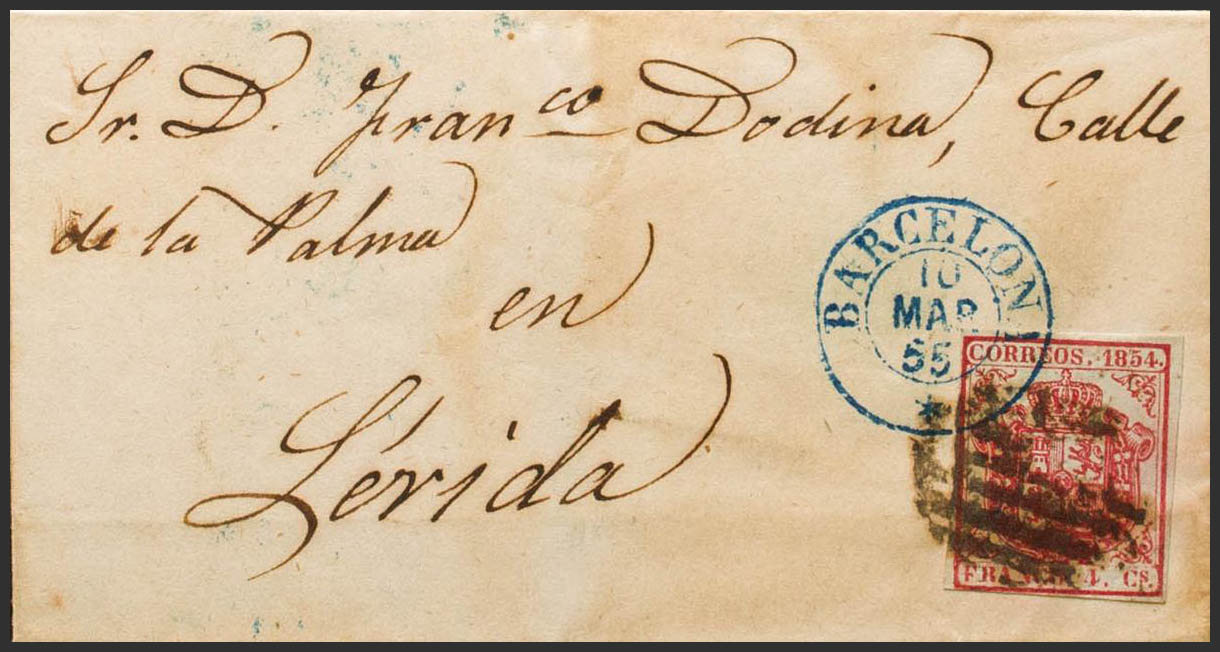 Sr. D. Franco Dodina, Calle
de la Palma
en
Lérida
BARCELONA
10
MAR
55
CORREOS. 1854.
FRANCO 4. Cs.